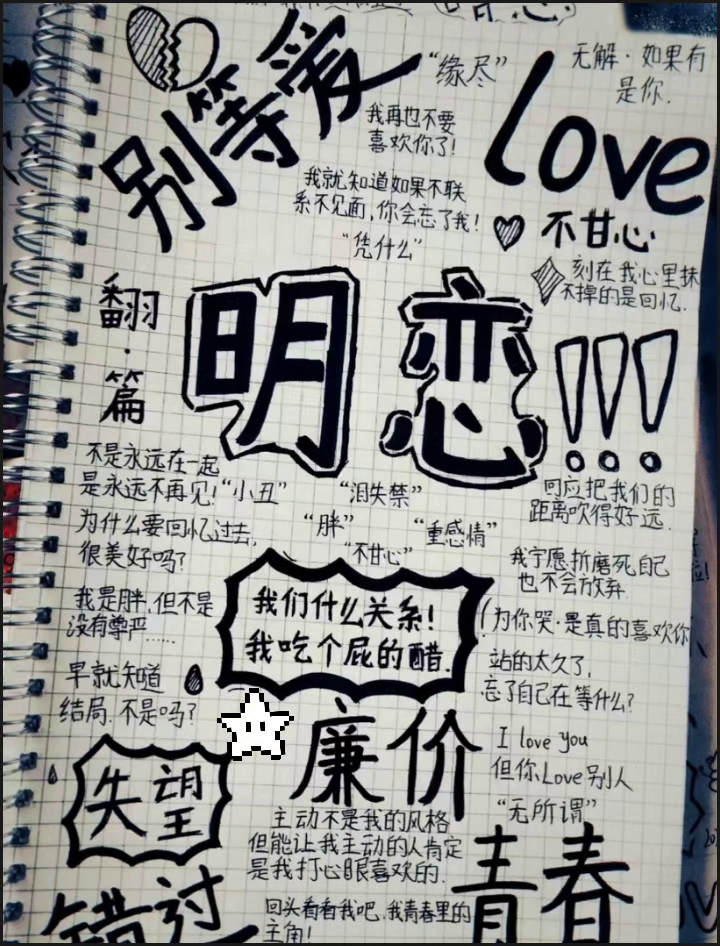 别等爱
“缘尽”
无解·如果有
是你.
love
我再也不要
喜欢你了!
我就知道如果不联
系不见面,你会忘了我!
“凭什么”
不甘心
刻在我心里抹
不掉的是回忆.
翻·篇
明恋!!!
不是永远在一起
是永远不再见!
“小丑”
“泪失禁”
“胖”
“重感情”
“不甘心”
为什么要回忆过去,
很美好吗?
我是胖,但不是
没有尊严……
早就知道
结局,不是吗?
我们什么关系!
我吃个屁的醋.
把我们的
距离吹得好远.
我宁愿折磨死自己
也不会放弃.
为你哭·是真的喜欢你
站的太久了,
忘了自己在等什么?
失望
廉价
I love you
但你Love别人
“无所谓”
主动不是我的风格
但能让我主动的人肯定
是我打心眼喜欢的.
错过
青春
回头看看我吧,我青春里的
主角!